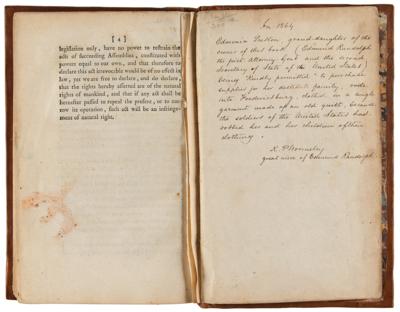 [ 4 ]
legislation only, have no power to restrain the
acts of succeeding Assemblies, constituted with
powers equal to our own, and that therefore to
declare this act irrevocable would be of no effect in
law, yet we are free to declare, and do declare,
that the rights hereby asserted are of the natural
rights of mankind, and that if any act shall be
hereafter passed to repeal the present, or to nar-
row its operation, such act will be an infringe-
ment of natural right.
In 1864
Edmonia grand-daughter of the
owner of this book (Edmund Randolph
the first Attorney Gen'l and the second
Secretary of State of the United States)
being "kindly permitted" to purchase
supplies for her destitute family, rode
into Fredericksburg clothed in a single
garment made of an old quilt, because
the soldiers of the United States had
robbed her and her children of their
clothing.
K.
great niece of Edmund Randolph